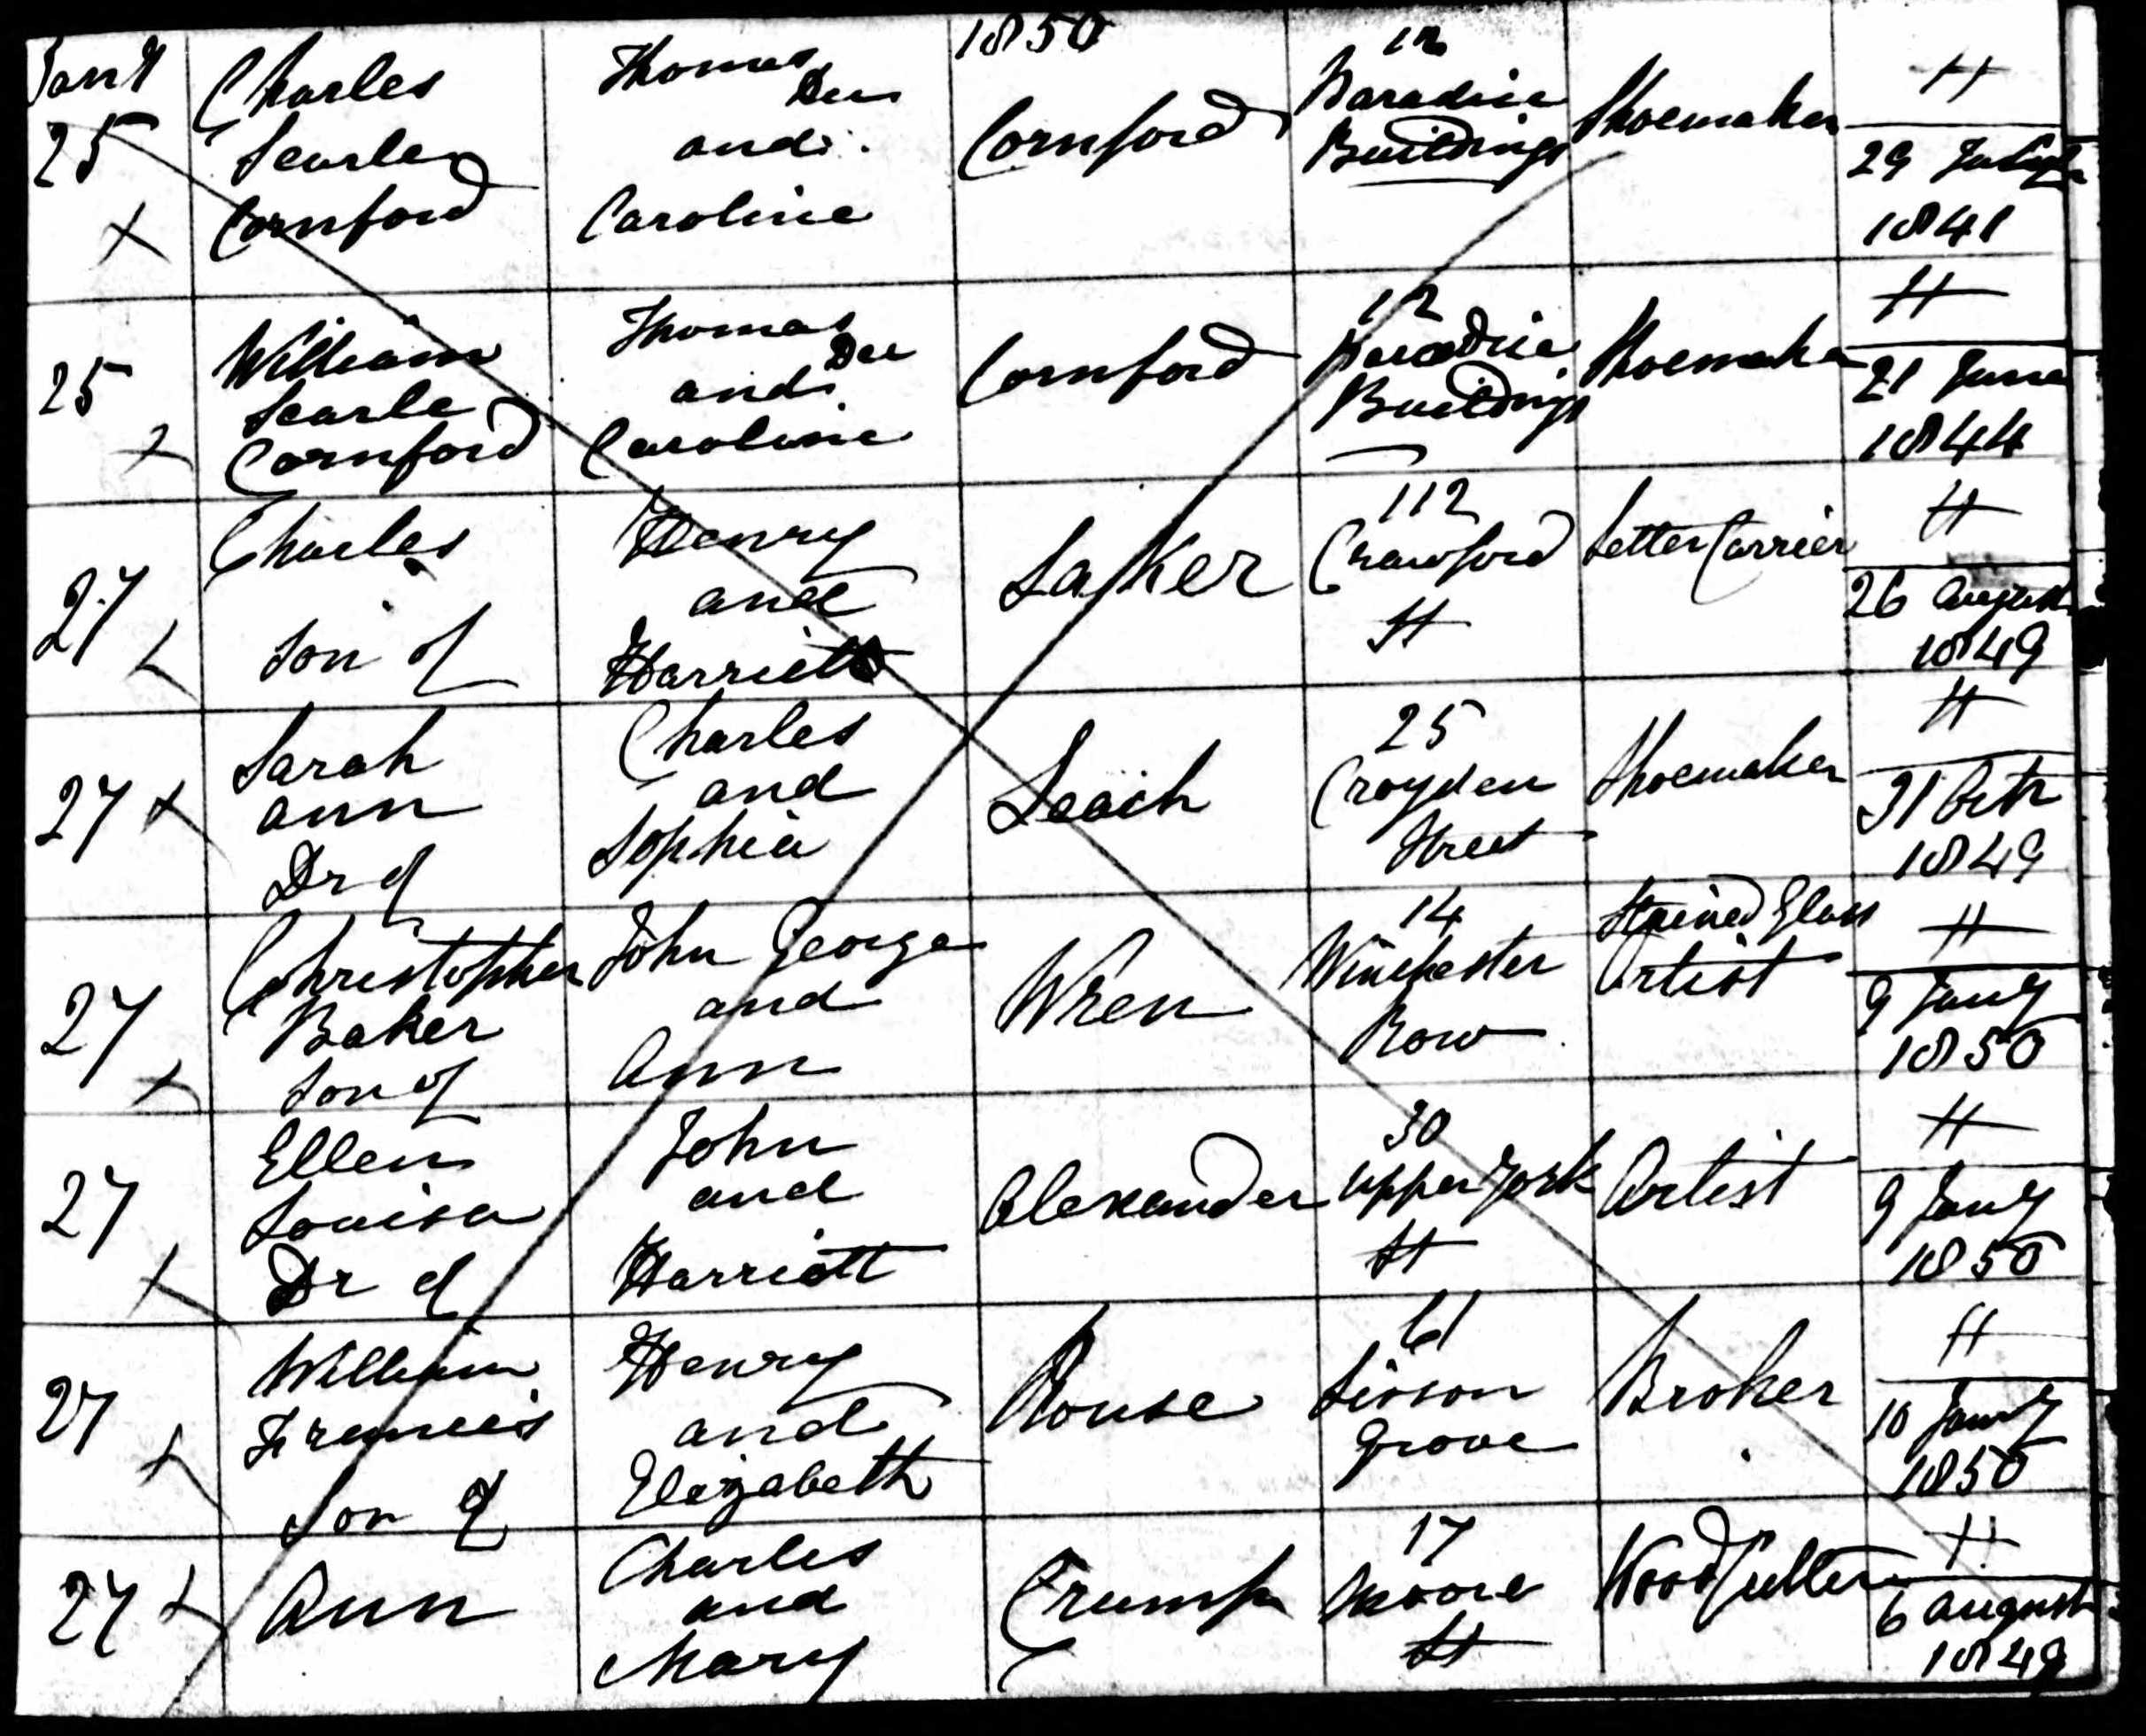 1850
Jany 25 Charles Searle Cornford
Thomas Dee and Caroline
Cornford
12 Paradise Buildings
Shoemaker
H
29 July 1841
25 William Searle Cornford
Thomas Dee and Caroline
Cornford
12 Paradise Buildings
Shoemaker
H
21 June 1844
27 Charles son of
Henry and Harriett
Laker
112 Crawford St
Letter Carrier
H
26 August 1849
27 Sarah Ann Dr of
Charles and Sophia
Leach
25 Croyden Street
Shoemaker
H
31 Octr 1849
27 Christopher Baker Son of
John George and Ann
Wren
14 Winchester Row
Stained Glass Artist
H
9 Jany 1850
27 Ellen Louisa Dr of
John and Harriott
Alexander
30 Upper York St
Artist
H
9 Jany 1850
27 William Francis Son of
Henry and Elizabeth
Rouse
61 Lisson Grove
Broker
H
10 Jany 1850
27 Ann
Charles and Mary
Crump
17 Moore St
Wood Cutter
H
6 August 1849